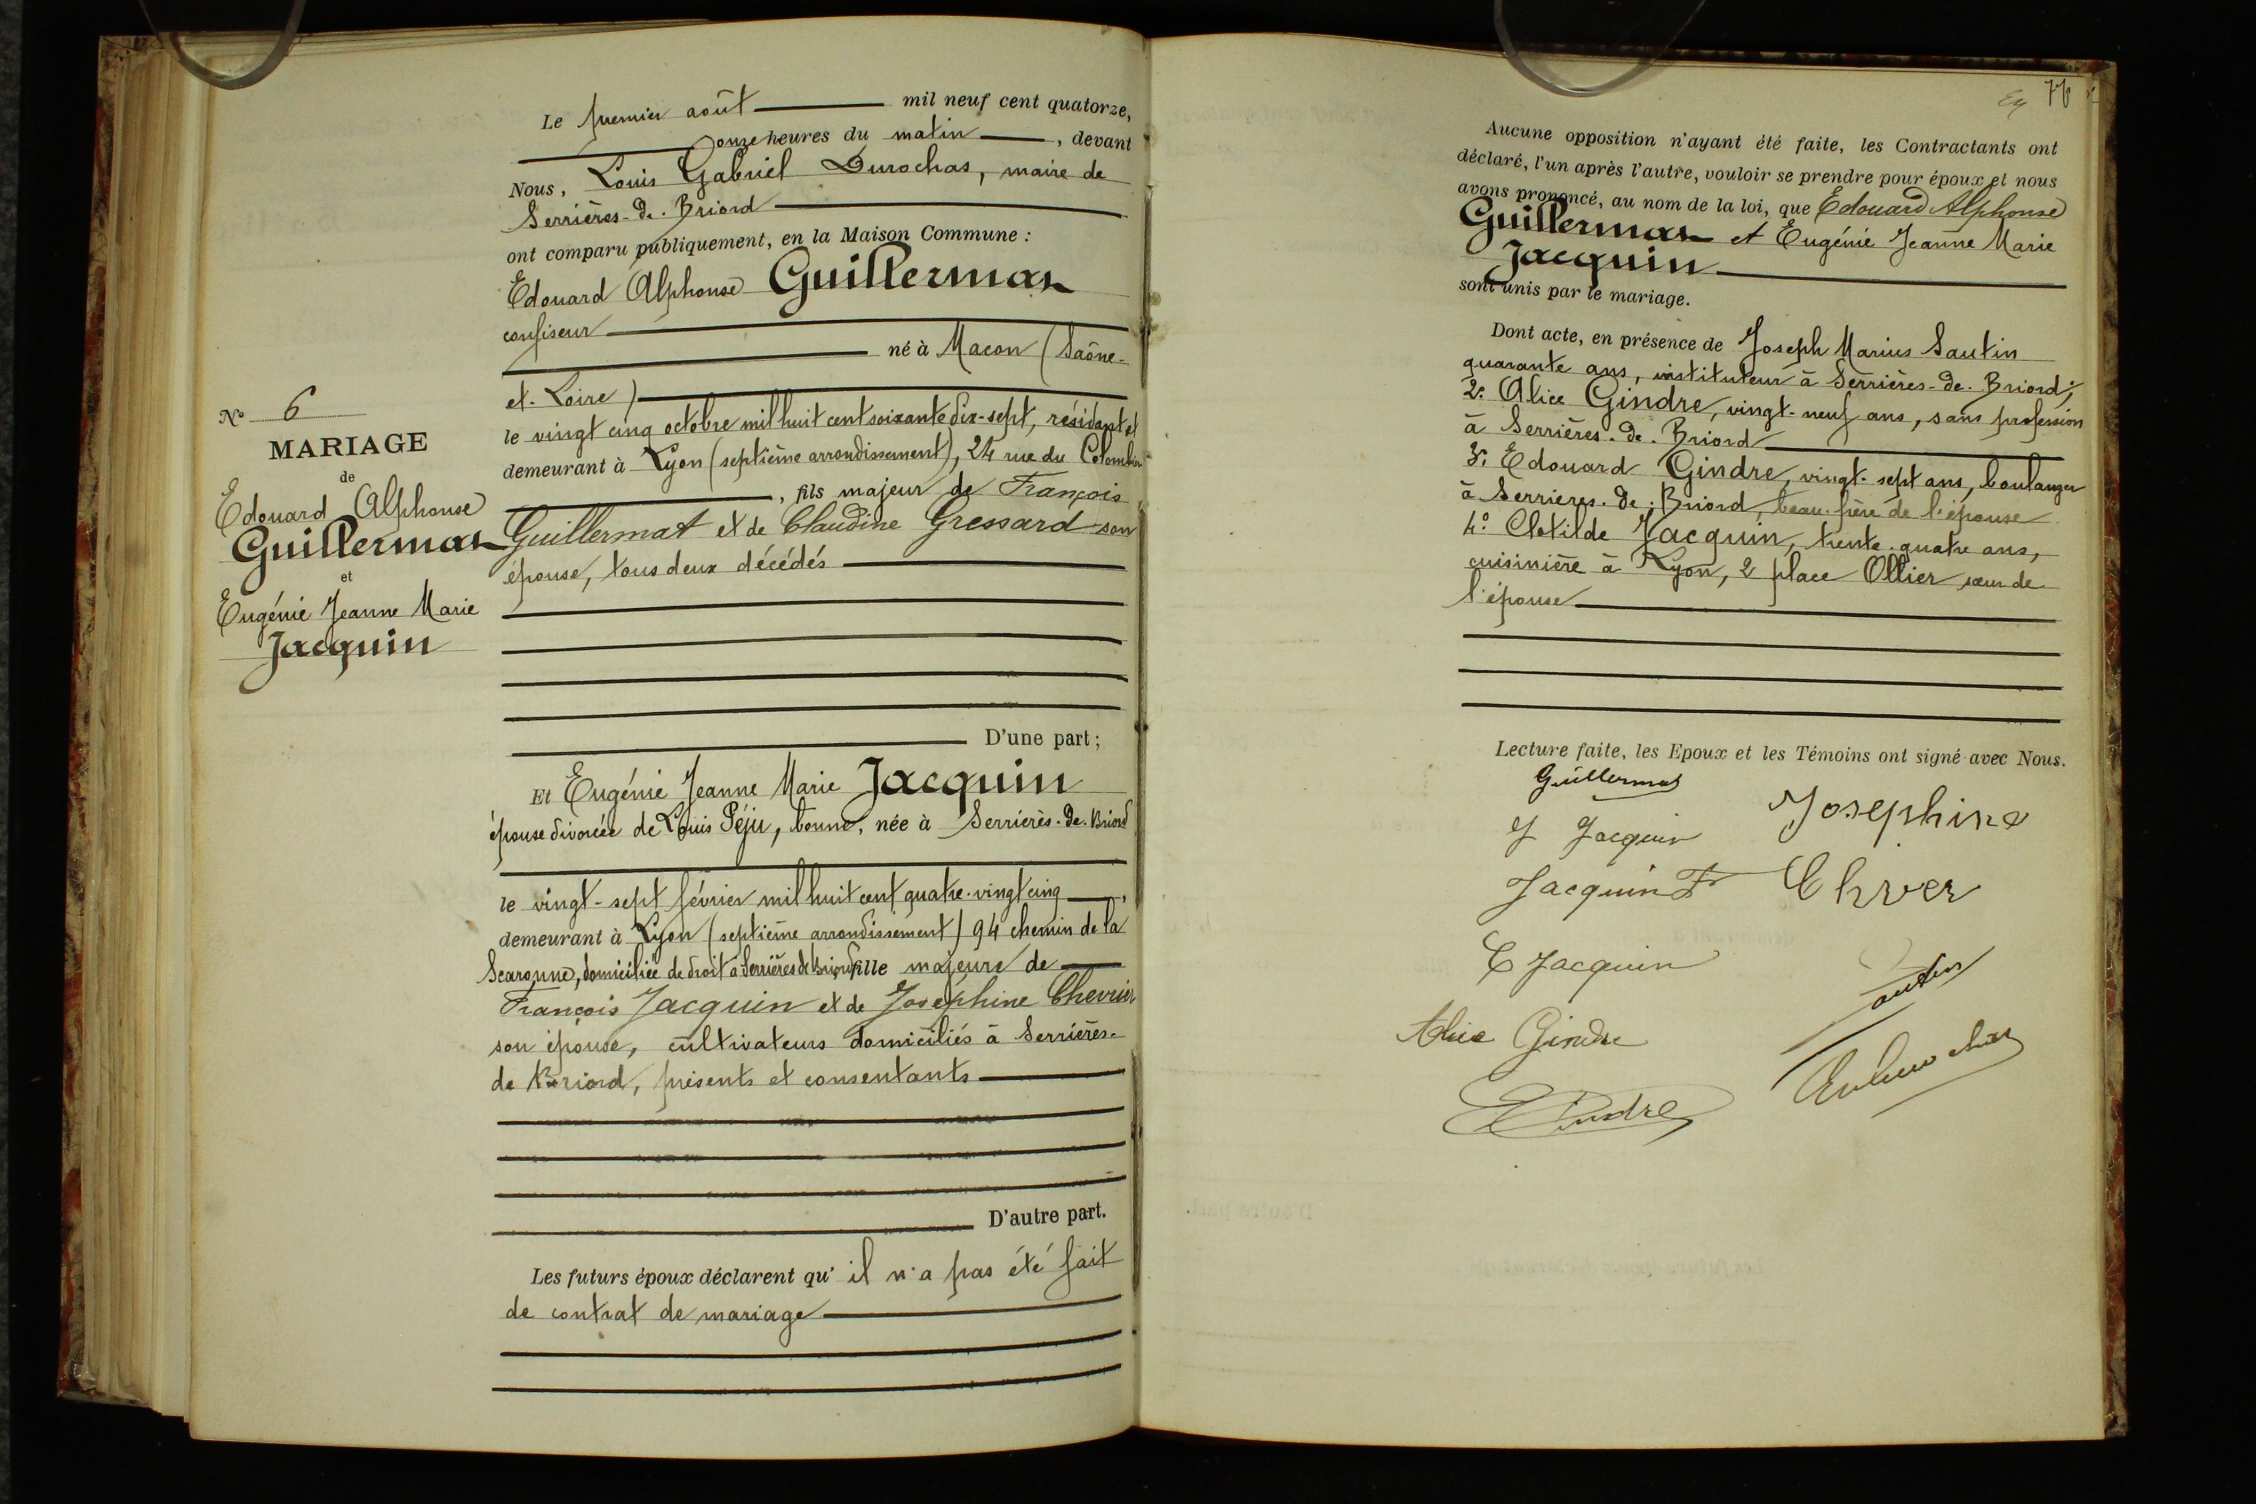 Le premier août mil neuf cent quatorze,
onze heures du matin, devant
Nous, Louis Gabriel Durochas, maire de
Serrières-de-Briord
ont comparu publiquement, en la Maison Commune :
Edouard Alphonse Guillermat
confiseur
né à Macon (Saône-
et-Loire)
le vingt cinq octobre mil huit cent soixante dix-sept, résidant et
demeurant à Lyon (septième arrondissement), 24 rue du Colombier
, fils majeur de François
Guillermat et de Claudine Gressard son
épouse, tous deux décédés
D'une part ;
Et Eugénie Jeanne Marie Jacquin
épouse divorcée de Louis Péju, bonne, née à Serrières-de-Briord
le vingt-sept février mil huit cent quatre-vingt cinq,
demeurant à Lyon (septième arrondissement) 94 chemin de la
Scaronne, domiciliée de droit à Serrières de Briord fille majeure de
François Jacquin et de Josephine Chevrier
son épouse, cultivateurs domiciliés à Serrières-
de Briord, présents et consentants
D'autre part.
Les futurs époux déclarent qu'il n'a pas été fait
de contrat de mariage
N° 6
MARIAGE
de
Edouard Alphonse
Guillermat
et
Eugénie Jeanne Marie
Jacquin
Aucune opposition n'ayant été faite, les Contractants ont
déclaré, l'un après l'autre, vouloir se prendre pour époux et nous
avons prononcé, au nom de la loi, que Edouard Alphonse
Guillermat et Eugénie Jeanne Marie
Jacquin
sont unis par le mariage.
Dont acte, en présence de Joseph Marius Sautin
quarante ans, instituteur à Serrières-de-Briord;
2° Alice Gindre, vingt-neuf ans, sans profession
à Serrières-de-Briord
3° Edouard Gindre, vingt-sept ans, boulanger
à Serrières-de-Briord, beau-frère de l'épouse
4° Clotilde Jacquin, trente-quatre ans,
cuisinière à Lyon, 2 place Ollier sœur de
l'épouse
Lecture faite, les Epoux et les Témoins ont signé avec Nous.
Guillermat
J Jacquin
Josephine
Jacquin F
C Jacquin
Alice Gindre